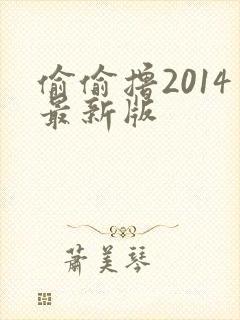 偷偷撸2014
最新版
萧美琴